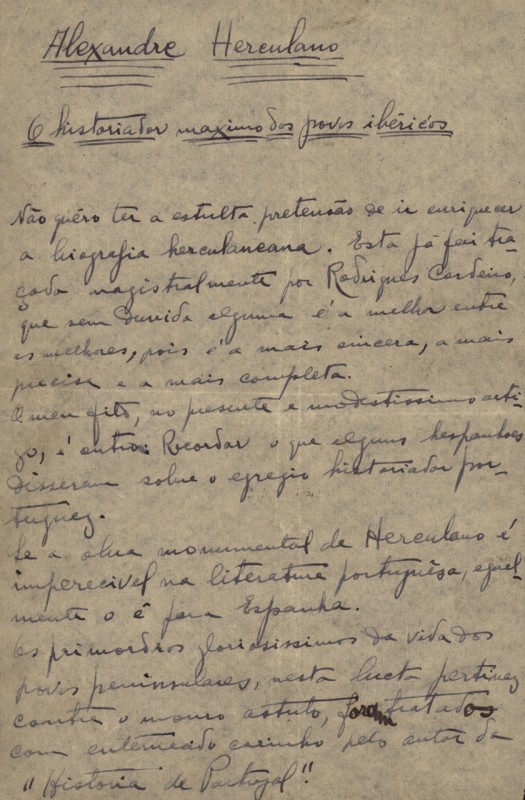 Alexandre Herculano
O historiador maximo dos povos ibéricos
Não quéro ter a estulta pretensão de ir enriquecer
a biografia herculaneana. Esta já foi tra-
çada magistralmente por Rodrigues Cordeiro,
que sem duvida alguma é a melhor entre
as melhores, pois é a mais sincera, a mais
precisa e a mais completa.
O meu fito, no presente e modestissimo arti-
go, é outro: Recordar o que alguns hespanhoes
disseram sobre o egregio historiador por-
tuguez.
Se a obra monumental de Herculano é
imperecivel na literatura portuguêsa, egual-
mente o é para Espanha.
Os primordios gloriosissimos da vida dos
povos peninsulares, nesta lucta pertinaz
contra o mouro astuto, foram tratados
com enternecido carinho pelo autor da
"Historia de Portugal".